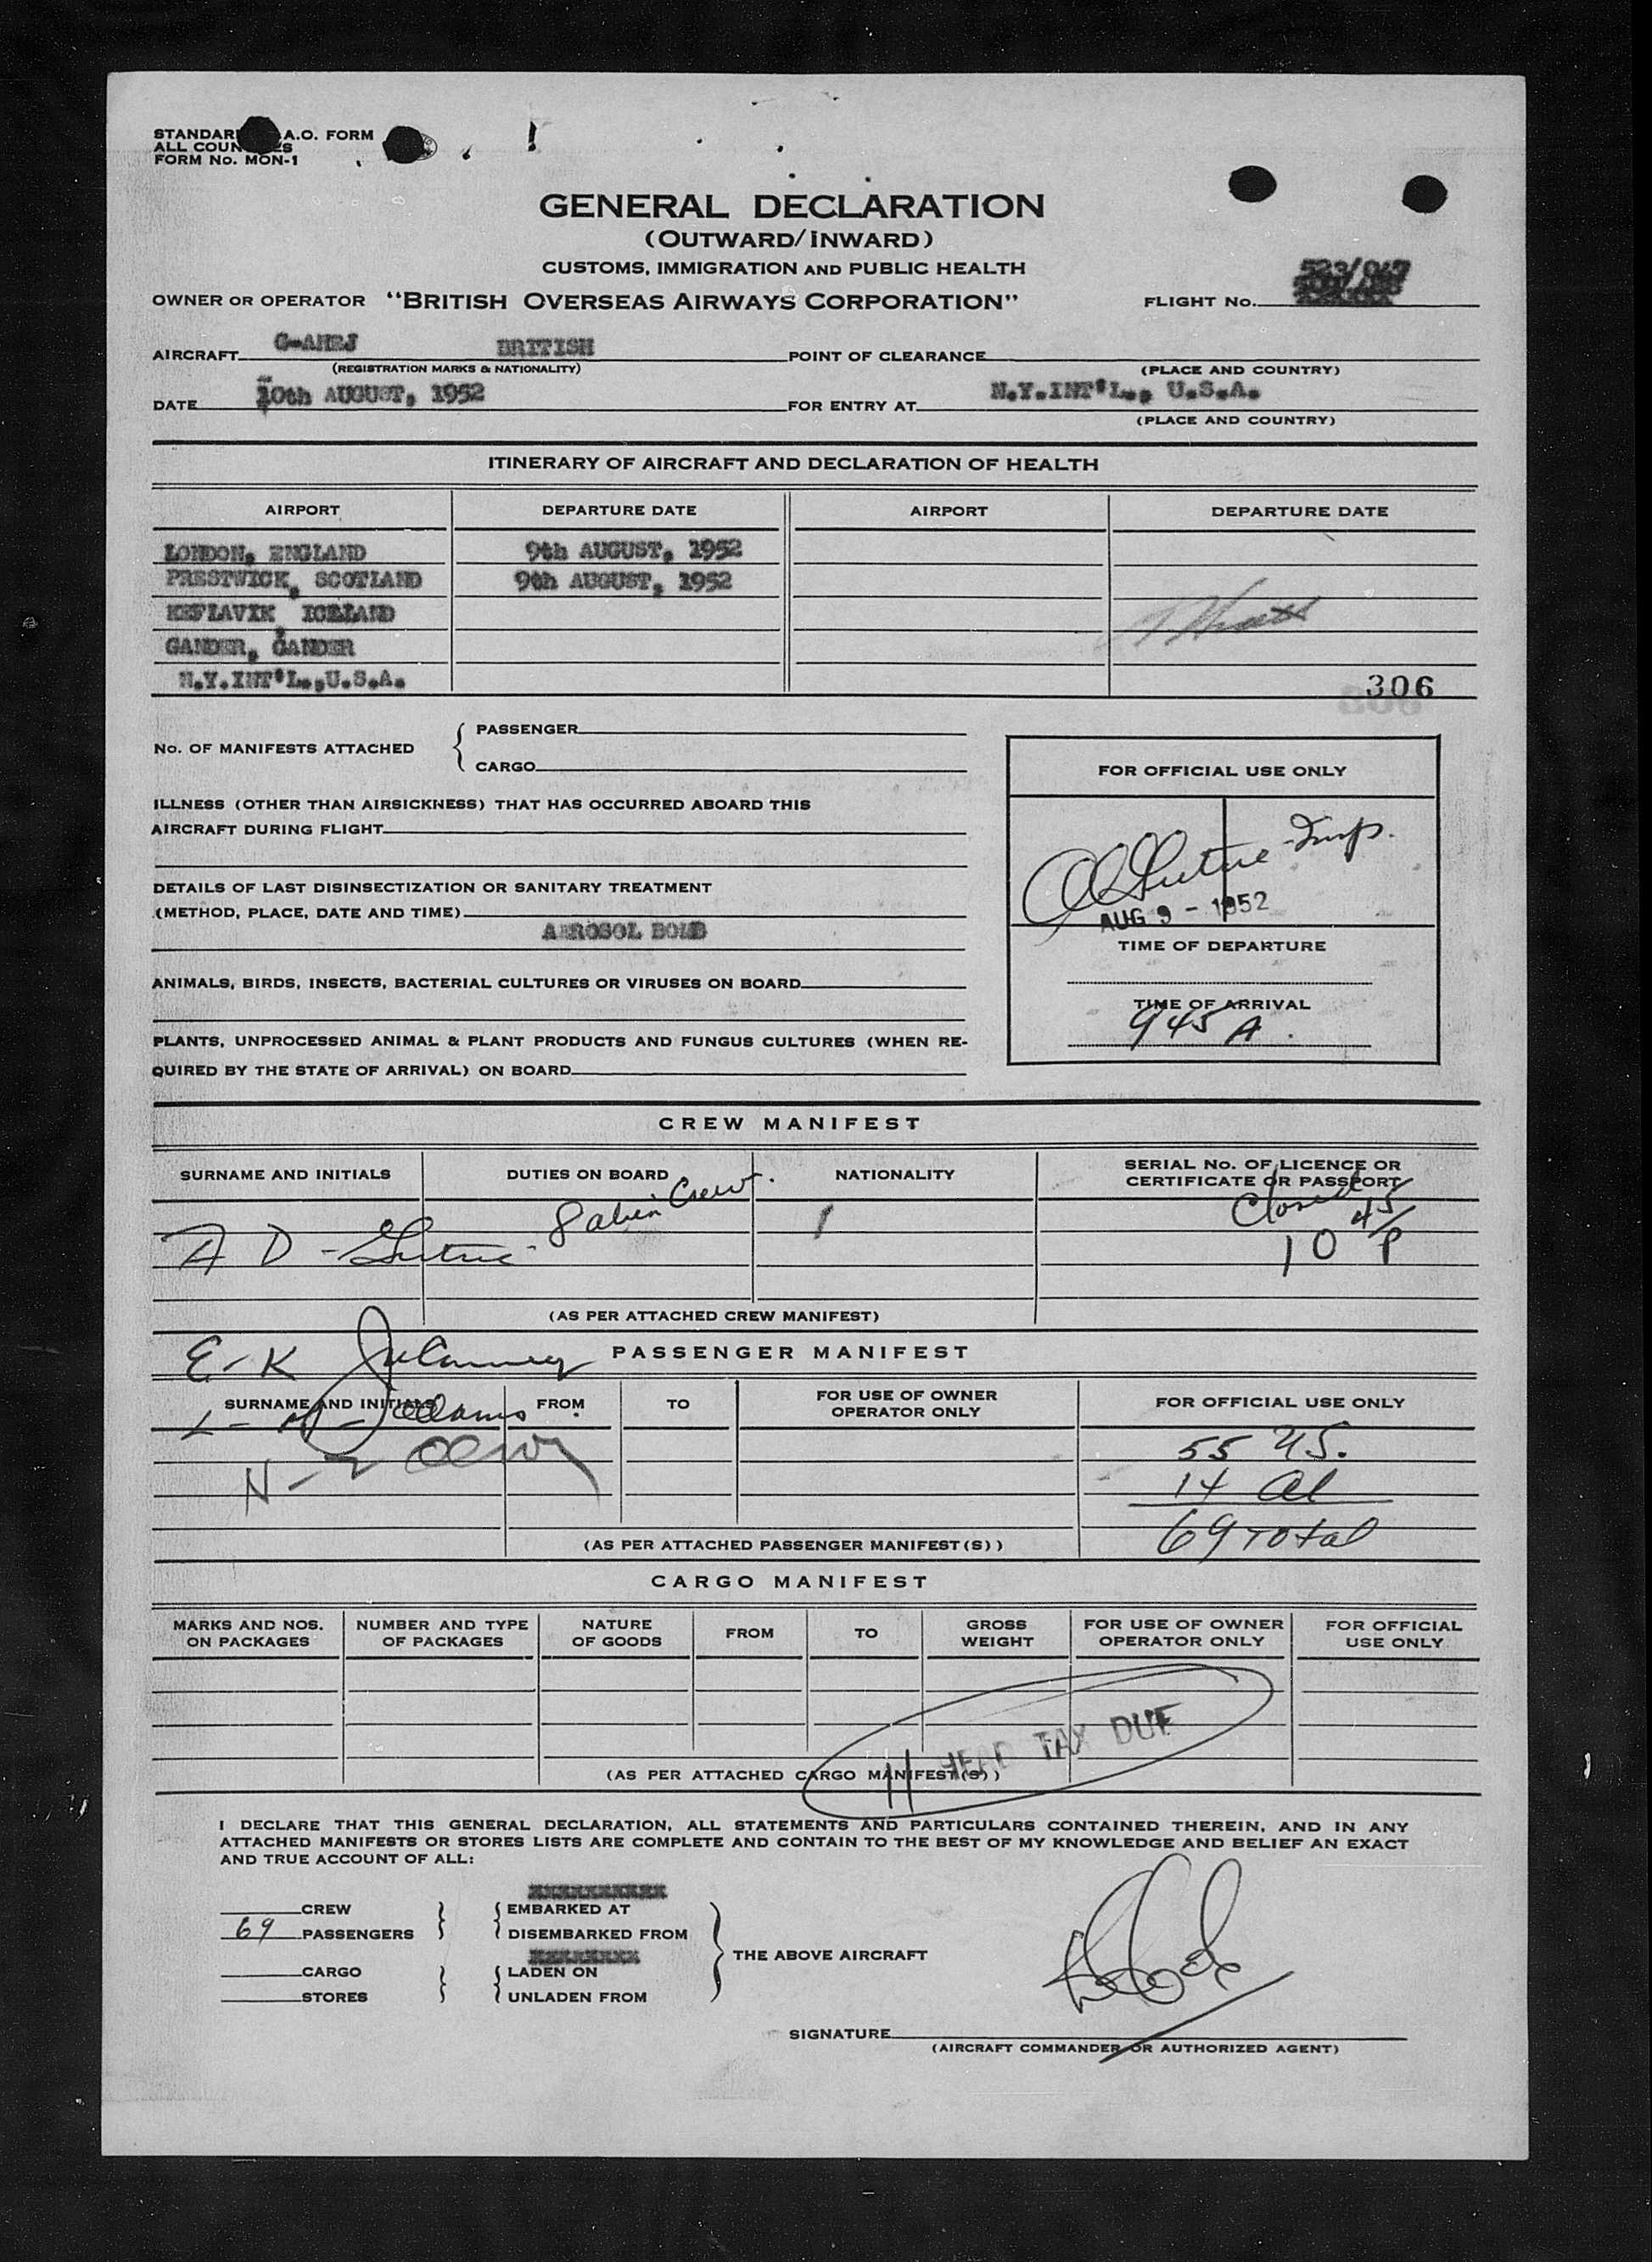 STANDARD A.O. FORM
ALL COUNTRIES
FORM No. MON-1
GENERAL DECLARATION
(OUTWARD/INWARD)
CUSTOMS, IMMIGRATION AND PUBLIC HEALTH
OWNER OR OPERATOR "BRITISH OVERSEAS AIRWAYS CORPORATION" FLIGHT No. 523/047
AIRCRAFT BRITISH POINT OF CLEARANCE
(REGISTRATION MARKS & NATIONALITY) (PLACE AND COUNTRY)
DATE 10th AUGUST, 1952 FOR ENTRY AT N.Y.INT'L., U.S.A.
(PLACE AND COUNTRY)
ITINERARY OF AIRCRAFT AND DECLARATION OF HEALTH
AIRPORT DEPARTURE DATE AIRPORT DEPARTURE DATE
LONDON, ENGLAND 9th AUGUST, 1952
PRESTWICK, SCOTLAND 9th AUGUST, 1952
KEFLAVIK, ICELAND
GANDER, CANDER
N.Y.INT'L.,U.S.A.
306
No. OF MANIFESTS ATTACHED { PASSENGER
CARGO
FOR OFFICIAL USE ONLY
ILLNESS (OTHER THAN AIRSICKNESS) THAT HAS OCCURRED ABOARD THIS
AIRCRAFT DURING FLIGHT
Insp.
DETAILS OF LAST DISINSECTIZATION OR SANITARY TREATMENT
(METHOD, PLACE, DATE AND TIME)
AUG 9 - 1952
AEROSOL BOMB
TIME OF DEPARTURE
ANIMALS, BIRDS, INSECTS, BACTERIAL CULTURES OR VIRUSES ON BOARD
TIME OF ARRIVAL
945 A.
PLANTS, UNPROCESSED ANIMAL & PLANT PRODUCTS AND FUNGUS CULTURES (WHEN RE-
QUIRED BY THE STATE OF ARRIVAL) ON BOARD
CREW MANIFEST
SURNAME AND INITIALS DUTIES ON BOARD NATIONALITY SERIAL No. OF LICENCE OR
CERTIFICATE OR PASSPORT
Crew. Closed
A D 10 45/P
(AS PER ATTACHED CREW MANIFEST)
E-K
PASSENGER MANIFEST
SURNAME AND INITIALS FROM TO FOR USE OF OWNER
OPERATOR ONLY FOR OFFICIAL USE ONLY
L- M- Adams
55 US.
14 Al
69 Total
(AS PER ATTACHED PASSENGER MANIFEST(S))
CARGO MANIFEST
MARKS AND NOS.
ON PACKAGES NUMBER AND TYPE
OF PACKAGES NATURE
OF GOODS FROM TO GROSS
WEIGHT FOR USE OF OWNER
OPERATOR ONLY FOR OFFICIAL
USE ONLY
11 HEAD TAX DUE
(AS PER ATTACHED CARGO MANIFEST(S))
I DECLARE THAT THIS GENERAL DECLARATION, ALL STATEMENTS AND PARTICULARS CONTAINED THEREIN, AND IN ANY
ATTACHED MANIFESTS OR STORES LISTS ARE COMPLETE AND CONTAIN TO THE BEST OF MY KNOWLEDGE AND BELIEF AN EXACT
AND TRUE ACCOUNT OF ALL:
CREW EMBARKED AT
69 PASSENGERS DISEMBARKED FROM
THE ABOVE AIRCRAFT
CARGO LADEN ON
STORES UNLADEN FROM
SIGNATURE
(AIRCRAFT COMMANDER OR AUTHORIZED AGENT)